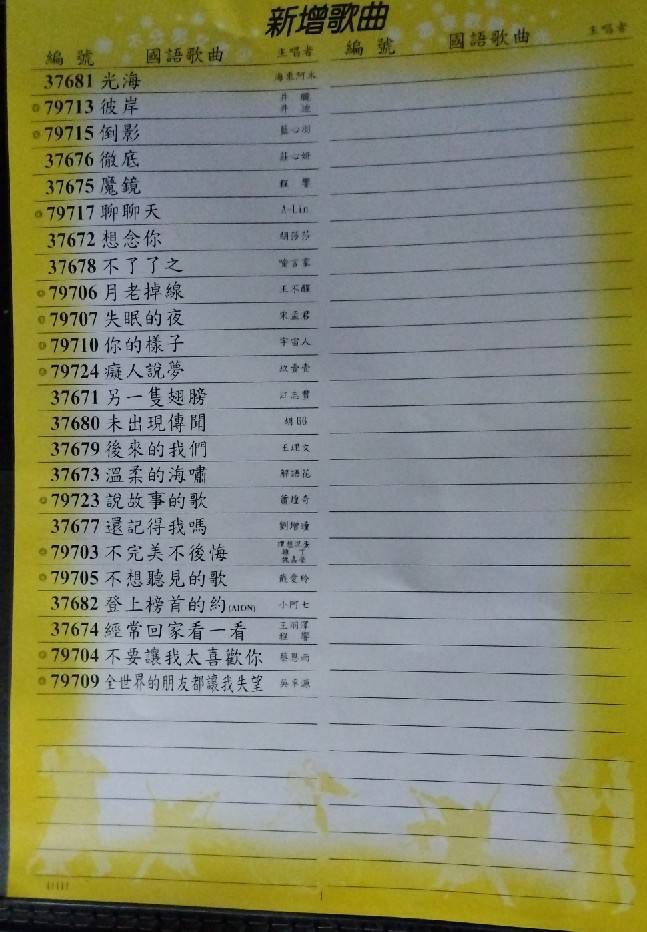 新增歌曲
編號 國語歌曲 主唱者 編號 國語歌曲 主唱者
37681 光海 海來阿木
79713 彼岸 井朧 井迪
79715 倒影 藍心羽
37676 徹底 莊心妍
37675 魔鏡 程響
79717 聊聊天 A-Lin
37672 想念你 胡莎莎
37678 不了了之 喻言家
79706 月老掉線 王不醒
79707 失眠的夜 宋孟君
79710 你的樣子 宇宙人
79724 癡人說夢 玖壹壹
37671 另一隻翅膀
37680 未出現傳聞 胡66
37679 後來的我們 王理文
37673 溫柔的海嘯 解語花
79723 說故事的歌 蕭煌奇
37677 還記得我嗎 劉增瞳
79703 不完美不後悔
79705 不想聽見的歌 戴愛玲
37682 登上榜首的約(AION) 小阿七
37674 經常回家看一看 王羽澤 程響
79704 不要讓我太喜歡你 蔡恩雨
79709 全世界的朋友都讓我失望
1